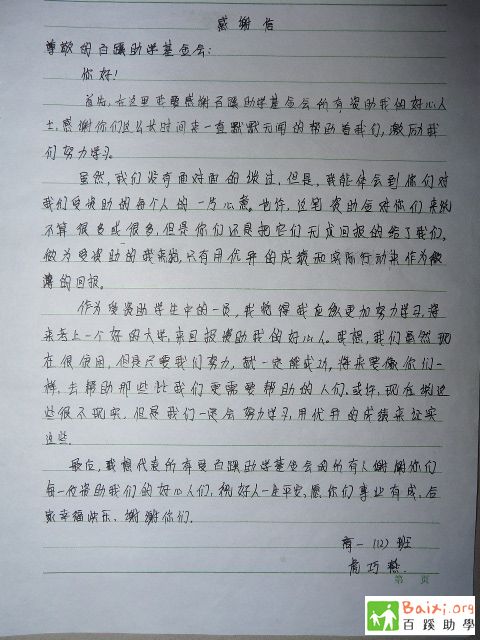 感谢信
尊敬的百蹊助学基金会:
你好!
首先,在这里我要感谢百蹊助学基金会所有资助我的好心人
士,感谢你们这么长时间来一直默默无闻的帮助着我们,激励我
们努力学习。
虽然,我们没有面对面的谈过,但是,我能体会到你们对
我们受资助的每个人的一片心意。也许,这笔资助金对你们来说
不算很多或很多,但是你们还是把它们无求回报的给了我们。
做为受资助的我来说,只有用优异的成绩和实际行动来作为微
薄的回报。
作为受资助学生中的一员,我觉得我应该更加努力学习,将
来考上一个好的大学,来回报资助我的好心人。我想,我们虽然现
在很贫困,但是只要我们努力,就一定能成功,将来要像你们一
样,去帮助那些比我们更需要帮助的人们。或许,现在说这
些很不现实,但是我们一定会努力学习,用优异的成绩来证实
这些。
最后,我想代表所有受百蹊助学基金会的所有人谢谢你们
每一位资助我们的好心人们,祝好人一生平安,愿你们事业有成,合
家幸福快乐、谢谢你们。
高一(12)班
巧燕
第 页
Baixi.org
百蹊助學